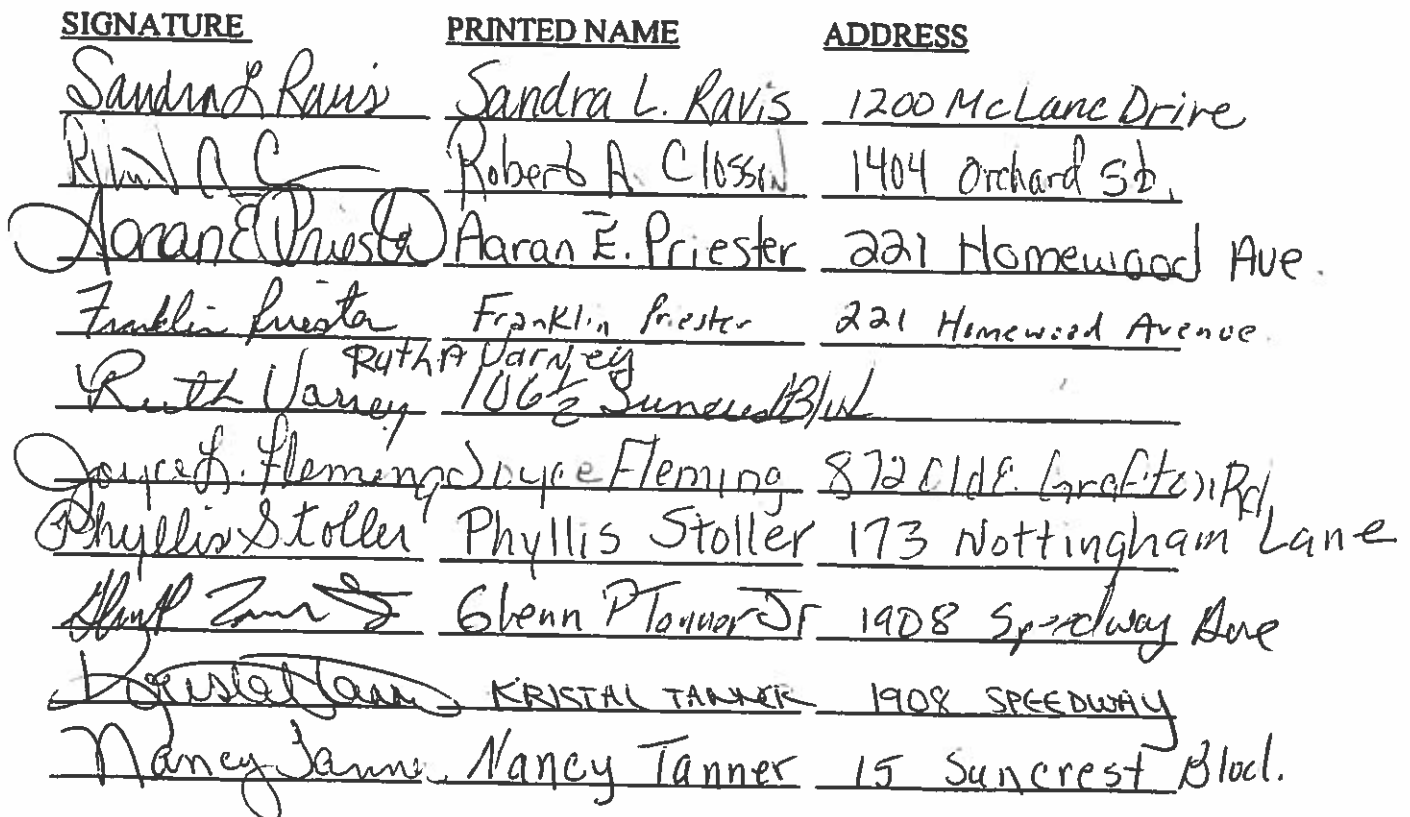 SIGNATURE PRINTED NAME ADDRESS
Sandra L Ravis Sandra L. Ravis 1200 McLane Drive
Robert A. Closson 1404 Orchard St.
Aaran E Priester Aaran E. Priester 221 Homewood Ave.
Franklin Priester Franklin Priester 221 Homewood Avenue.
Ruth A Varney
Ruth Varney 106 1/2 Suncrest Blvd
Joyce L. Fleming Joyce Fleming 872 Old E. Grafton Rd
Phyllis Stoller Phyllis Stoller 173 Nottingham Lane
Glenn P Tanner Jr 1908 Speedway Ave
KRISTAL TANNER 1908 SPEEDWAY
Nancy Tanner Nancy Tanner 15 Suncrest Blvd.